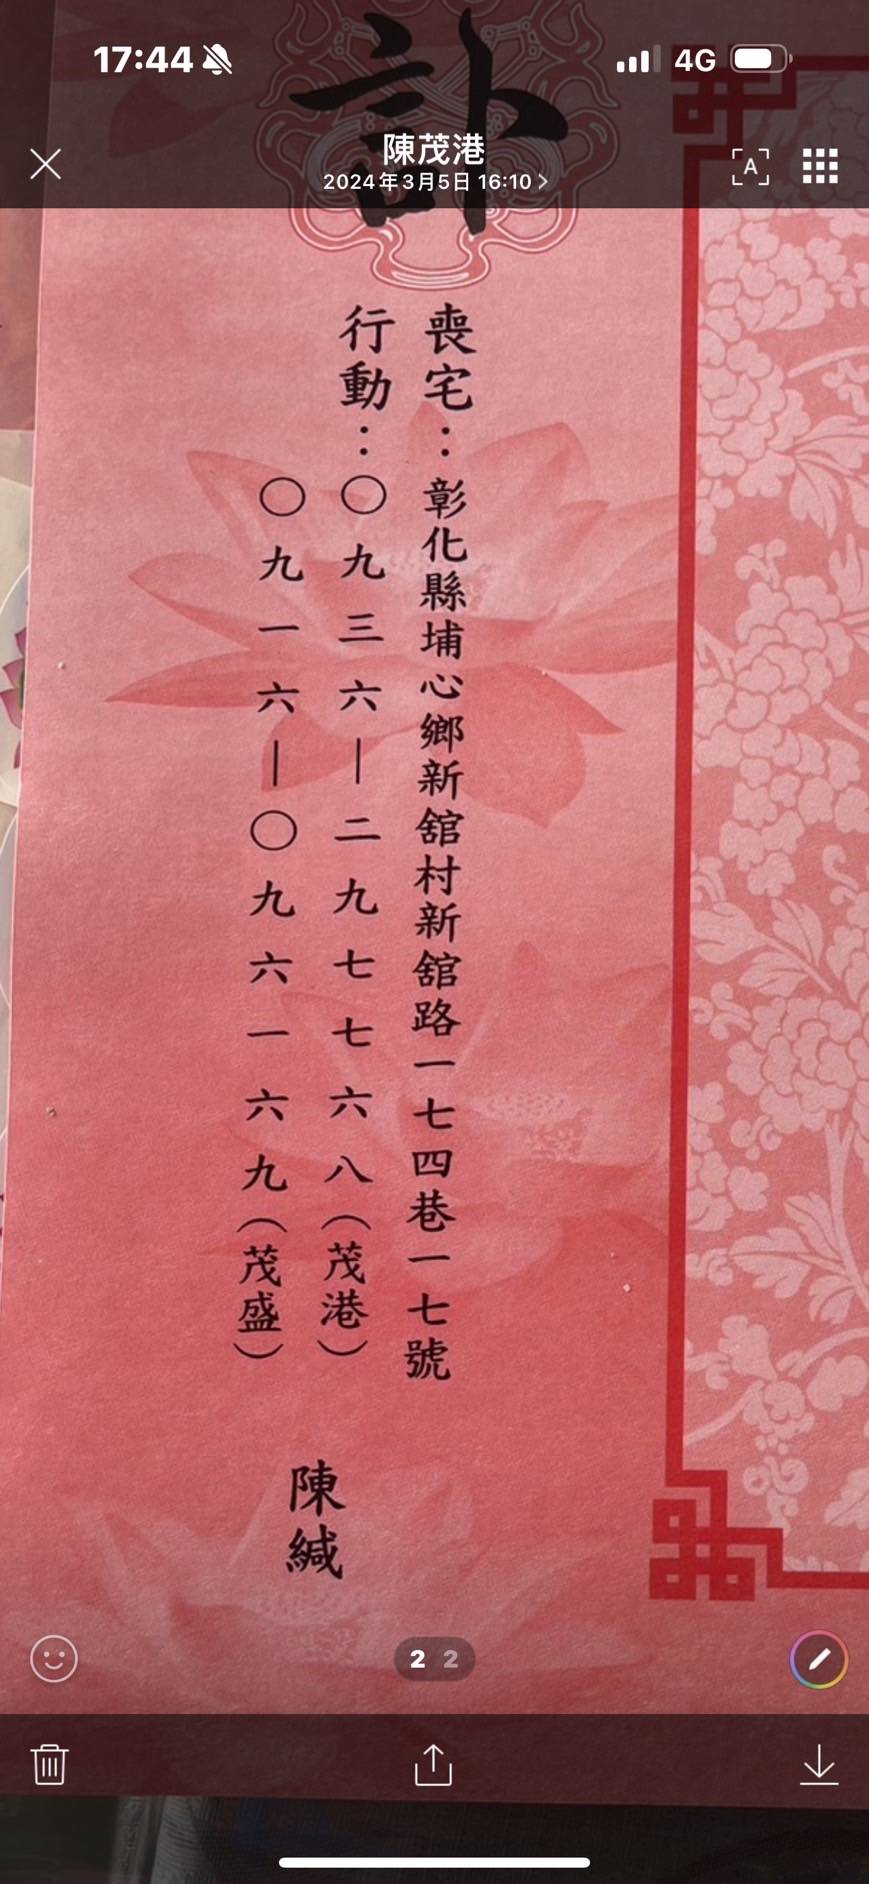 17:44
4G
陳茂港
2024年3月5日 16:10
A
訃
喪宅：彰化縣埔心鄉新舘村新舘路一七四巷一七號
行動：〇九三六—二九七七六八（茂港）
〇九一六—〇九六一六九（茂盛）
陳緘
2 2